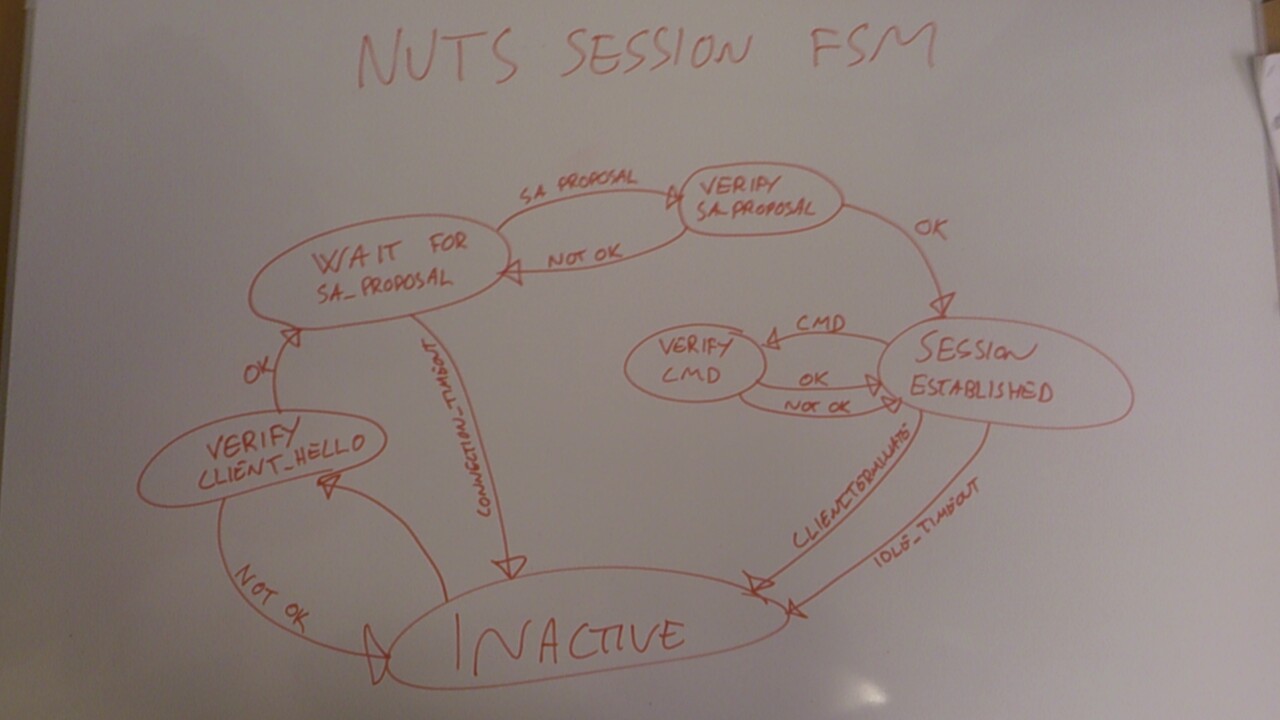 NUTS SESSION FSM
SA PROPOSAL
VERIFY
SA_PROPOSAL
OK
WAIT FOR
SA_PROPOSAL
NOT OK
CMD
VERIFY
CMD
OK
NOT OK
SESSION
ESTABLISHED
OK
CONNECTION_TIMEOUT
VERIFY
CLIENT_HELLO
CLIENT_TERMINATE
IDLE_TIMEOUT
NOT OK
INACTIVE